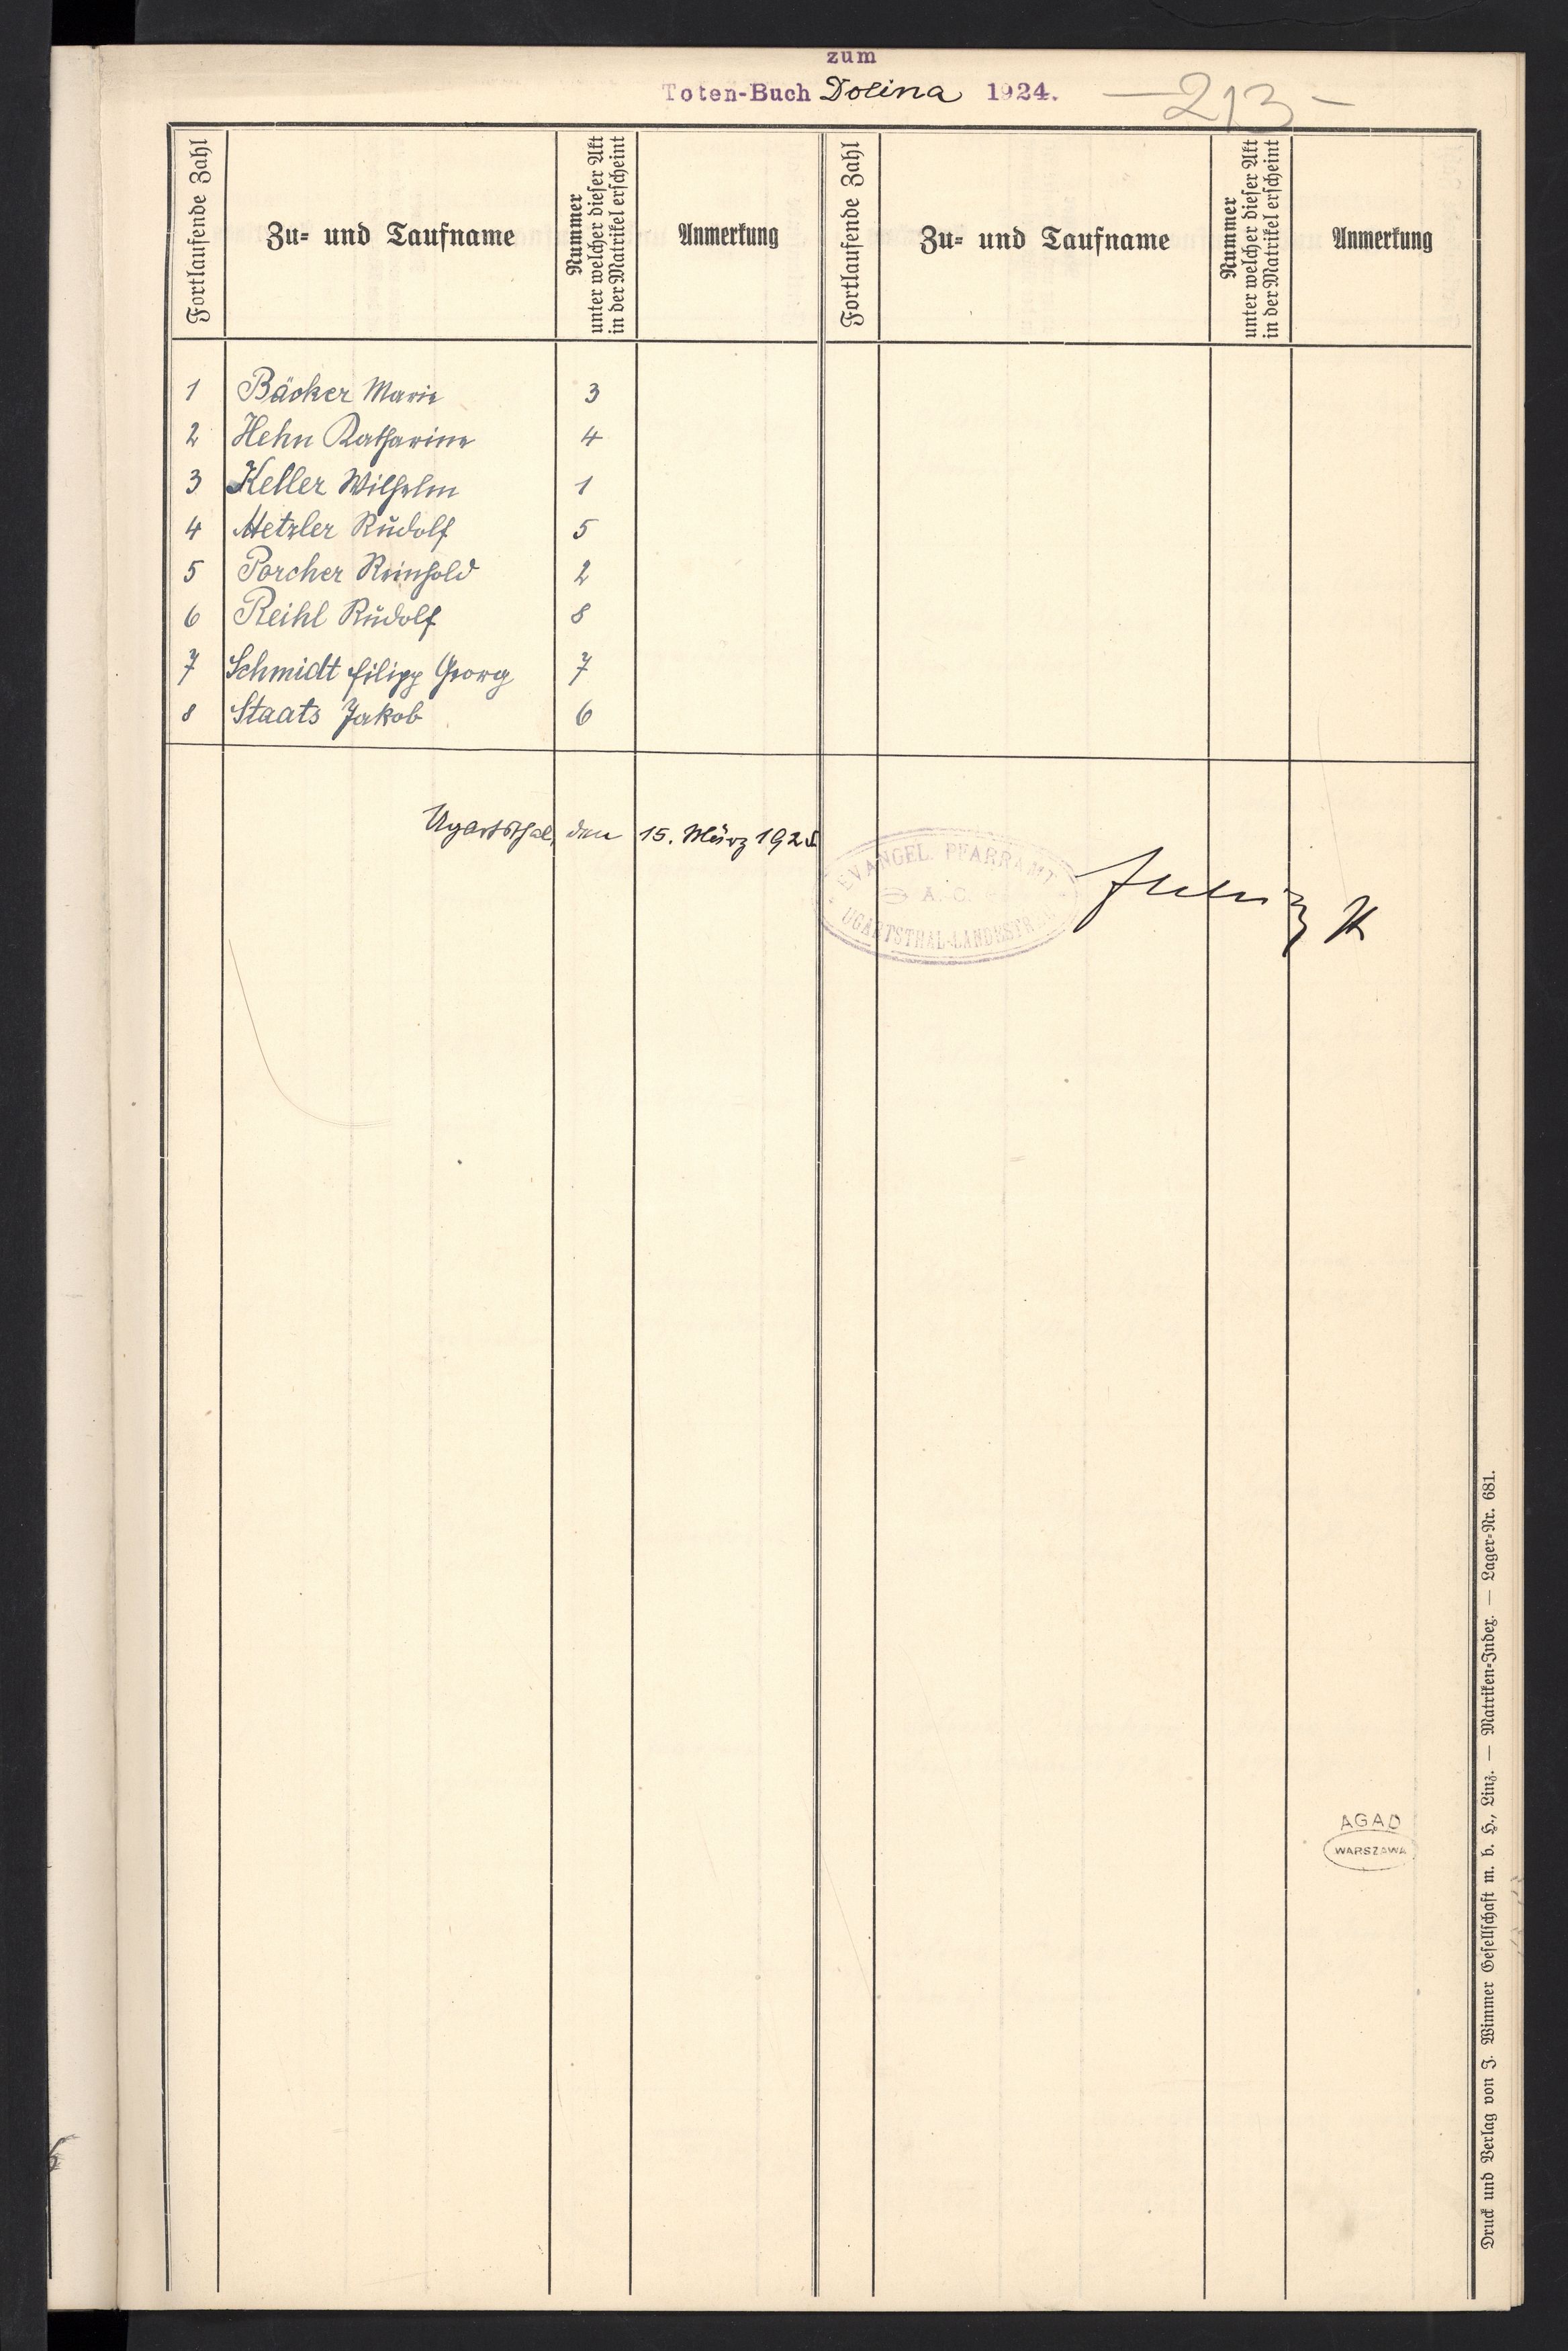 zum
Toten-Buch Dolina 1924.
—213—
Fortlaufende Zahl
Zu- und Taufname
Nummer
unter welcher dieser Akt
in der Matrikel erscheint
Anmerkung
Fortlaufende Zahl
Zu- und Taufname
Nummer
unter welcher dieser Akt
in der Matrikel erscheint
Anmerkung
1 Bäcker Marie 3
2 Hehn Katharine 4
3 Keller Wilhelm 1
4 Metzler Rudolf 5
5 Porcher Reinhold 2
6 Reihl Rudolf 8
7 Schmidt Filipp Georg 7
8 Staats Jakob 6
Ugartsthal, den 15. März 1925
EVANGEL. PFARRAMT
A. C.
UGARTSTHAL-LANDESTREU
AGAD
WARSZAWA
Druck und Verlag von J. Wimmer Gesellschaft m. b. H., Linz. — Matriken-Index. — Lager-Nr. 681.